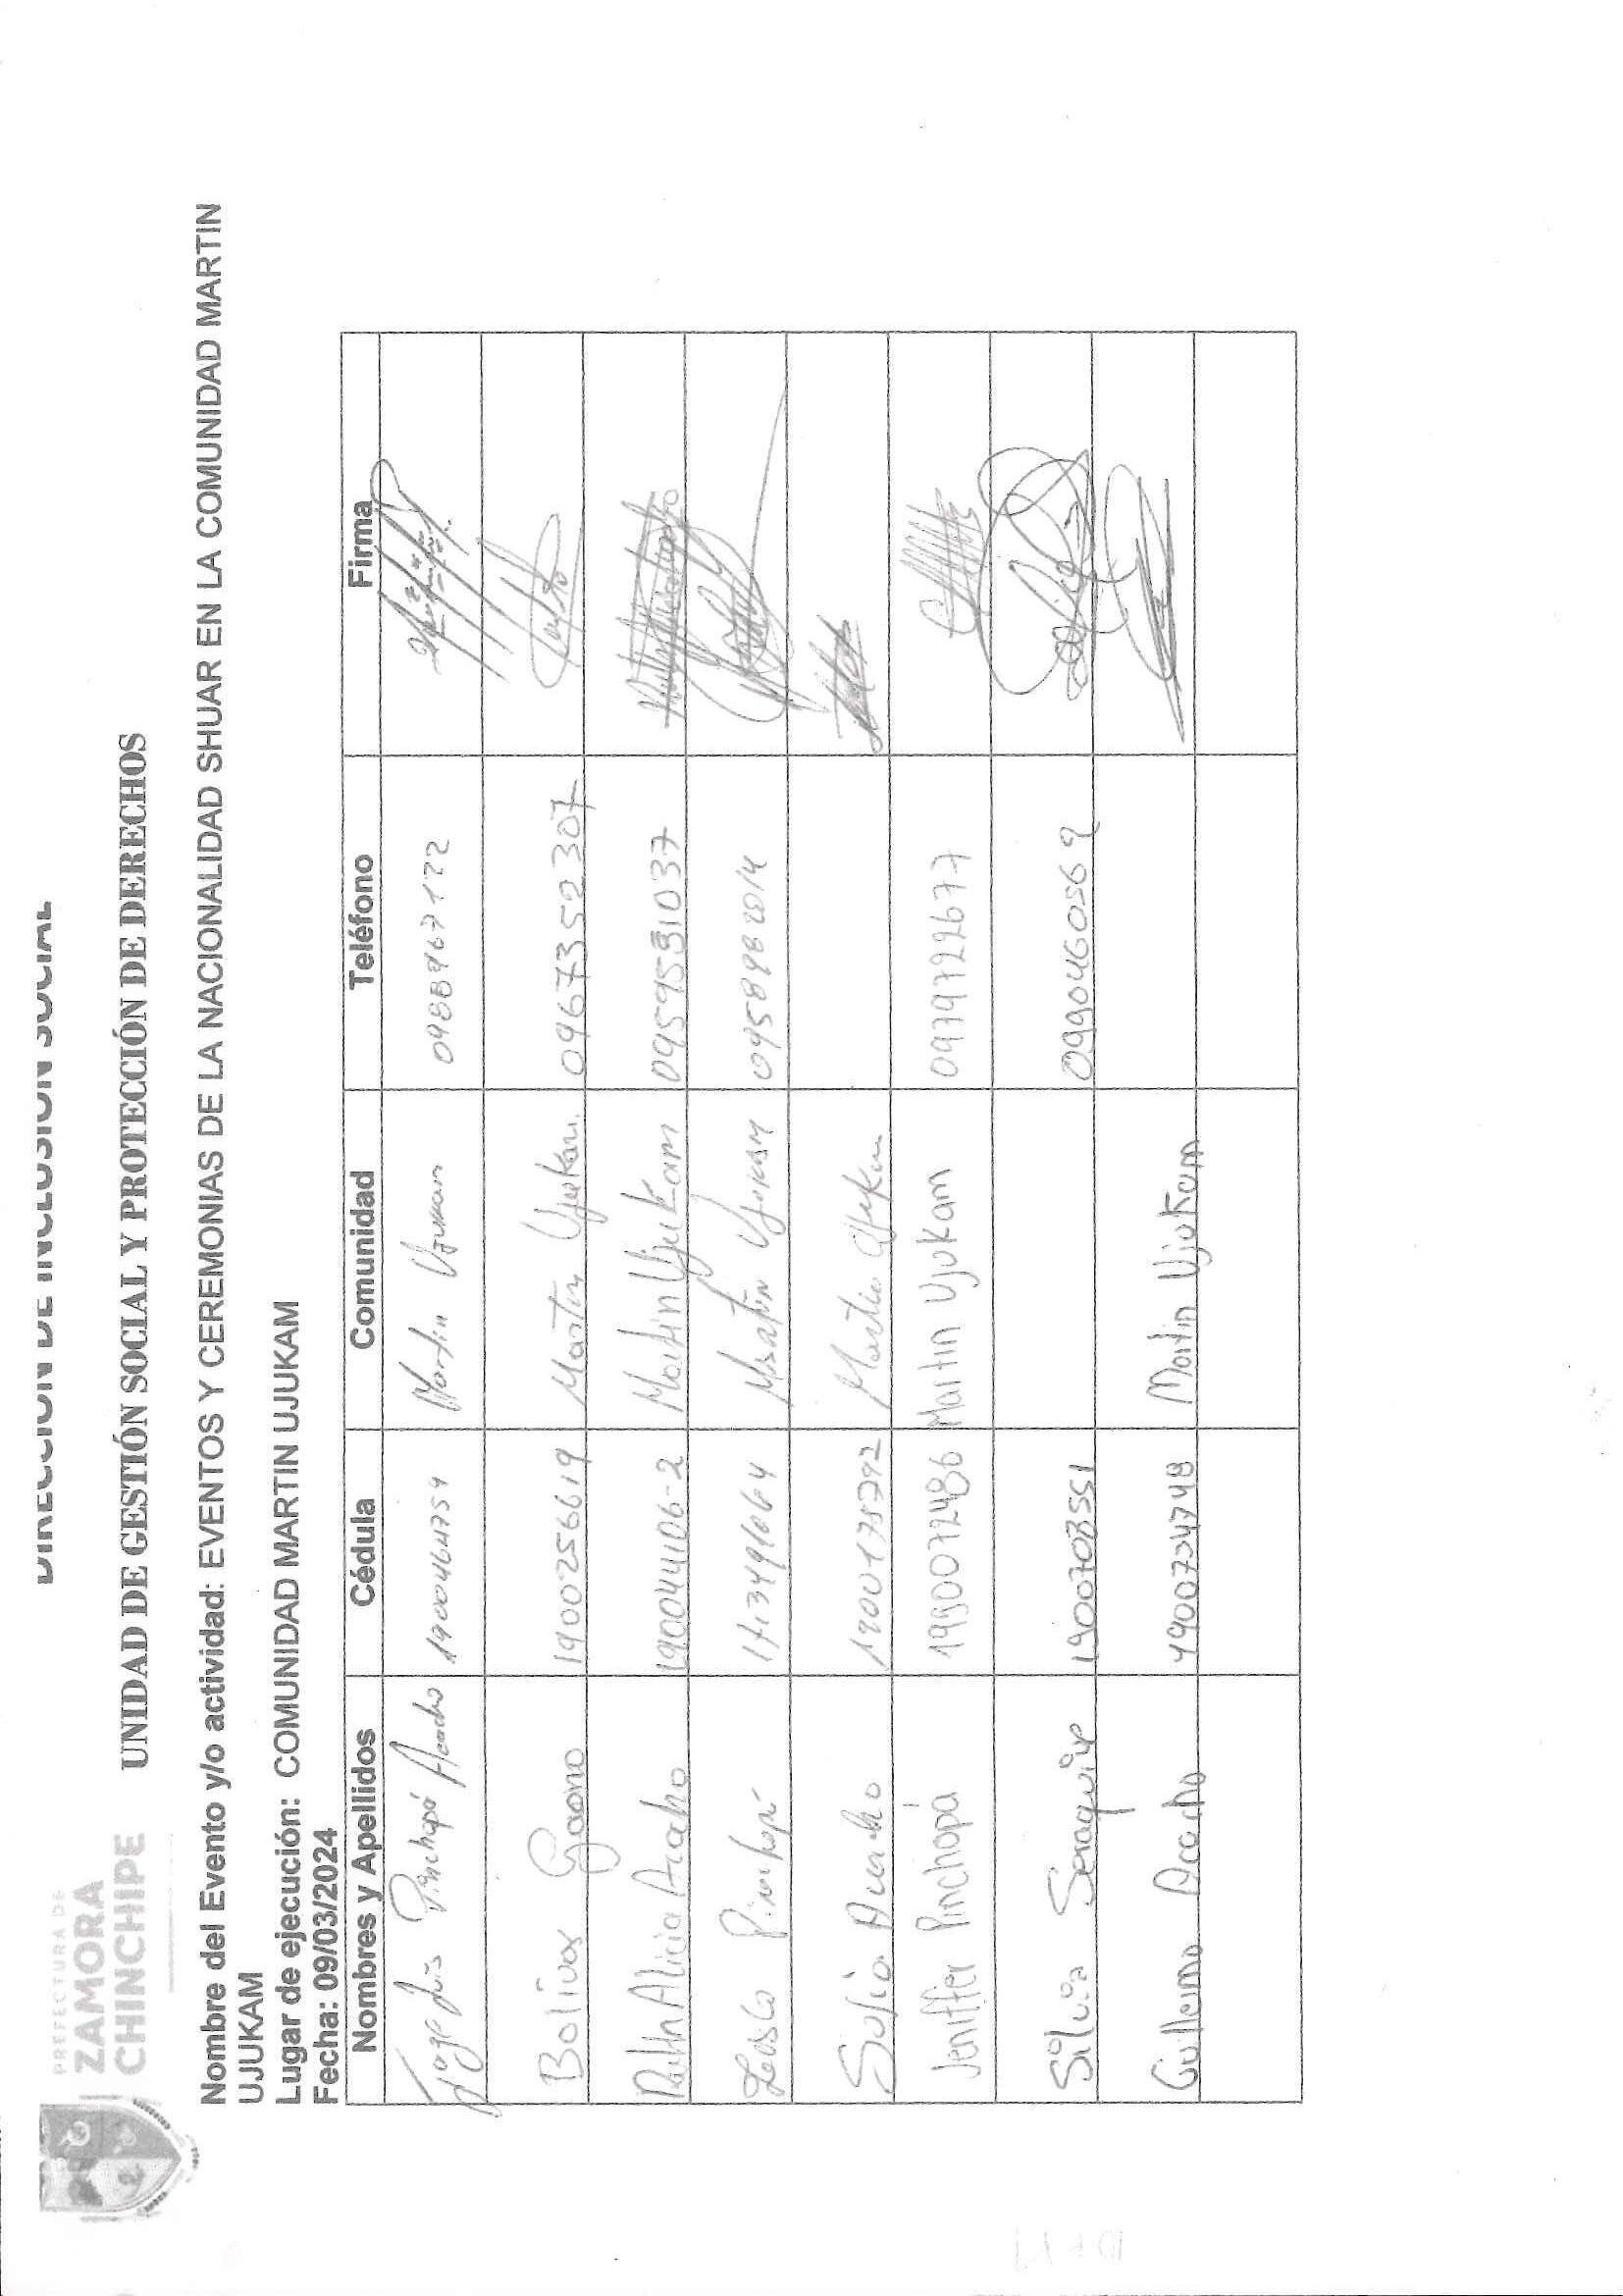 DIRECCIÓN DE INCLUSIÓN SOCIAL
PREFECTURA DE
ZAMORA
CHINCHIPE
UNIDAD DE GESTIÓN SOCIAL Y PROTECCIÓN DE DERECHOS
Nombre del Evento y/o actividad: EVENTOS Y CEREMONIAS DE LA NACIONALIDAD SHUAR EN LA COMUNIDAD MARTIN
UJUKAM
Lugar de ejecución: COMUNIDAD MARTIN UJUKAM
Fecha: 09/03/2024
Nombres y Apellidos Cédula Comunidad Teléfono Firma
Jorge Luis Pinchopá Acacho 1900464759 Martin Ujukam 0988967122
Bolívar Gaona 1900256619 Martin Ujukam 0967352307
Ruth Alicia Acacho 190044106-2 Martin Ujukam 0959591037
Pinchopá Martin Ujukam 0958982014
Acacho 1900175792 Martin
Jeniffer Pinchopá 1900072486 Martin Ujukam 0979722677
Silvia Saraguire 1900708551 0990460569
Gullermo Acacho 1900734748 Martin Ujukam